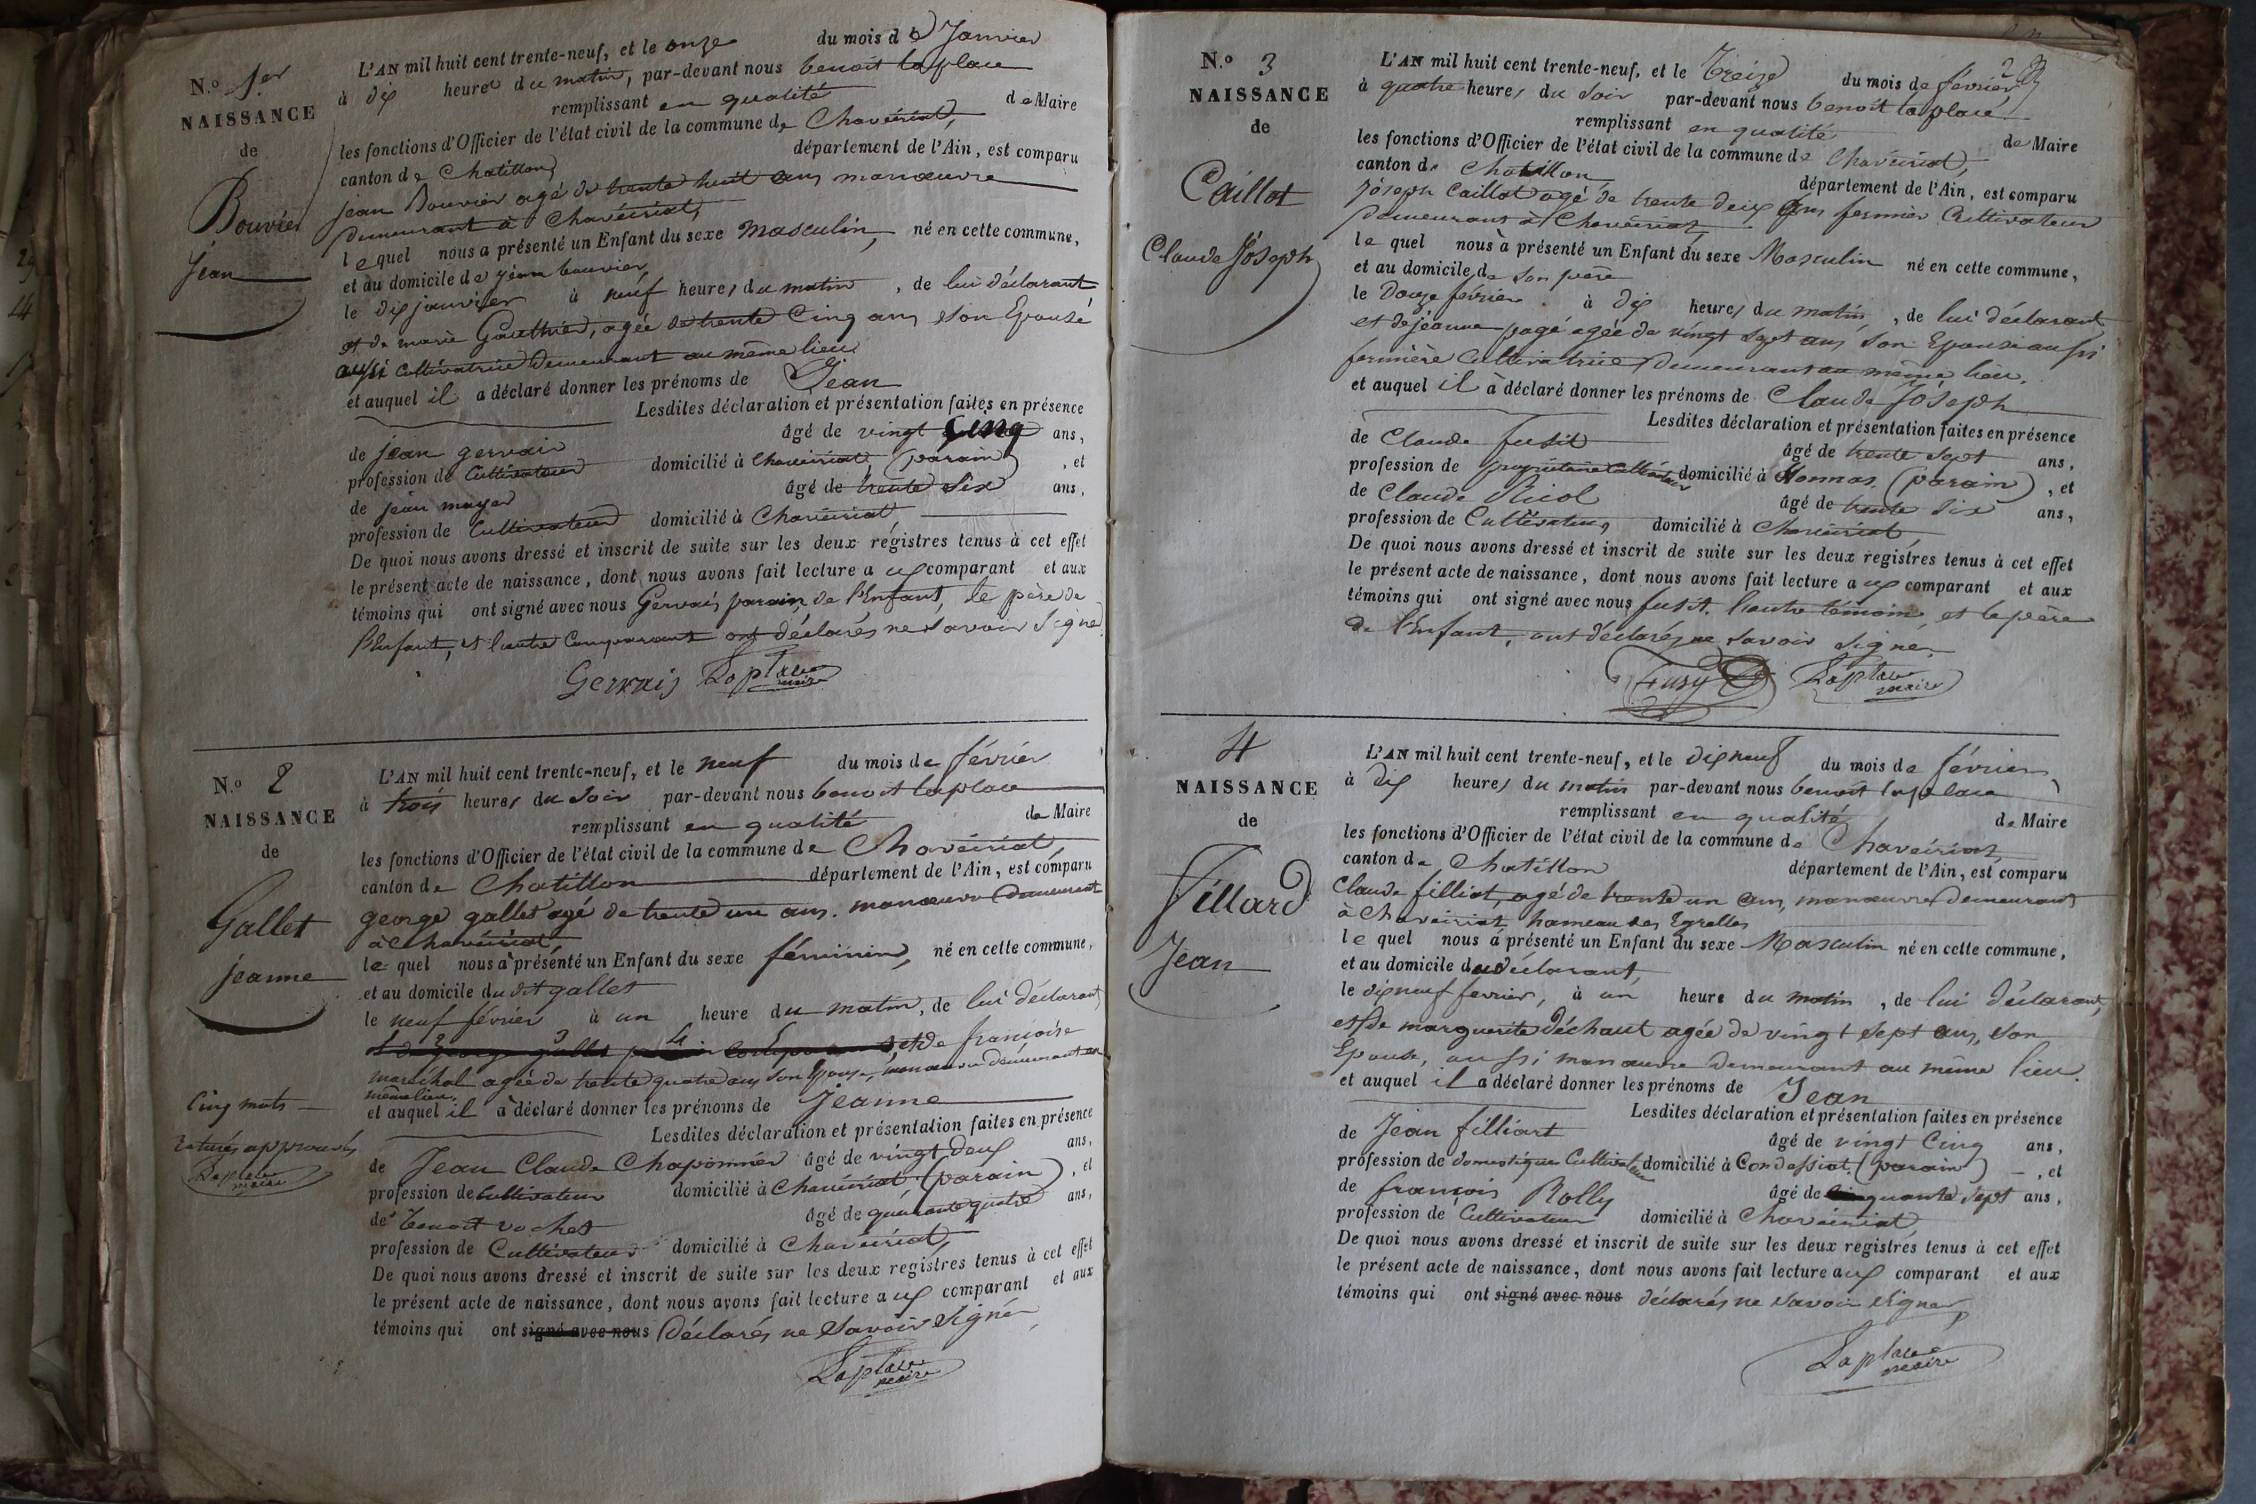 N.o 1er
NAISSANCE
de
Bouvier
Jean
L'AN mil huit cent trente-neuf, et le onze du mois de Janvier
à dix heures du matin, par-devant nous benoit laplace
remplissant en qualité de Maire
les fonctions d'Officier de l'état civil de la commune de Chavéiriat,
canton de Chatillon, département de l'Ain, est comparu
jean Bouvier agé de trente huit ans manœuvre
demeurant à Chavéiriat,
lequel nous a présenté un Enfant du sexe masculin, né en cette commune,
et au domicile de jean bouvier,
le dix janvier à neuf heures du matin, de lui déclarant
et de marie Gauthier, agée de trente Cinq ans, son Epouse
aussi cultivatrice demeurant au même lieu
et auquel il a déclaré donner les prénoms de Jean
Lesdites déclaration et présentation faites en présence
de jean gervais âgé de vingt Cinq ans,
profession de Cultivateur domicilié à Chavéiriat, (parain), et
de jean mayer âgé de trente Six ans,
profession de Cultivateur domicilié à Chavéiriat
De quoi nous avons dressé et inscrit de suite sur les deux régistres tenus à cet effet
le présent acte de naissance, dont nous avons fait lecture aux comparant et aux
témoins qui ont signé avec nous Gervais parain de l'Enfant, le père de
l'Enfant, et l'autre Comparant ont déclarés ne Savoir Signé.
Gervais Laplace
maire
N.o 2
NAISSANCE
de
Gallet
jeanne
Cinq mots
raturés approuvés
Laplace
maire
L'AN mil huit cent trente-neuf, et le neuf du mois de février
à trois heures du Soir par-devant nous benoit laplace
remplissant en qualité de Maire
les fonctions d'Officier de l'état civil de la commune de Chavéiriat,
canton de Chatillon département de l'Ain, est comparu
george gallet agé de trente un ans. manœuvre demeurant
à Chavéiriat,
lequel nous a présenté un Enfant du sexe féminin, né en cette commune,
et au domicile du dit gallet
le neuf février à un heure du matin, de lui déclarant
et de francoise
maréchal agée de trente quatre ans son Epouse, manœuvre demeurant au
même lieu.
et auquel il a déclaré donner les prénoms de Jeanne
Lesdites déclaration et présentation faites en présence
de Jean Claude Chaponnier âgé de vingt deux ans,
profession de Cultivateur domicilié à Chavéiriat. (parain), et
de benoit vochet âgé de quarante quatre ans,
profession de Cultivateur domicilié à Chavéiriat,
De quoi nous avons dressé et inscrit de suite sur les deux registres tenus à cet effet
le présent acte de naissance, dont nous avons fait lecture aux comparant et aux
témoins qui ont signé avec nous Déclarés ne Savoir Signé,
Laplace
maire
N.o 3
NAISSANCE
de
Caillot
Claude Jóseph
L'AN mil huit cent trente-neuf, et le Treize du mois de février,
à quatre heures du Soir par-devant nous benoit laplace
remplissant en qualité de Maire
les fonctions d'Officier de l'état civil de la commune de Chavéiriat,
canton de Chatillon département de l'Ain, est comparu
Jóseph Caillot agé de trente deux ans fermier Cultivateur
Demeurant à Chavéiriat,
lequel nous à présenté un Enfant du sexe Masculin né en cette commune,
et au domicile de son père
le Douze février à dix heures du matin, de lui déclarant
et de jeanne pagé agée de vingt Sept ans, Son Epouse aussi
fermière Cultivatrice, Demeurant au même lieu.
et auquel il à déclaré donner les prénoms de Claude Jóseph
Lesdites déclaration et présentation faites en présence
de Claude fusit âgé de trente Sept ans,
profession de propriétaire Cultivateur domicilié à Monnas (parain), et
de Claude Ricol âgé de trente Six ans,
profession de Cultivateur, domicilié à Chavéiriat,
De quoi nous avons dressé et inscrit de suite sur les deux registres tenus à cet effet
le présent acte de naissance, dont nous avons fait lecture aux comparant et aux
témoins qui ont signé avec nous fusit. l'autre témoin, et le père
de l'Enfant, ont déclarés ne Savoir Signer
Laplace
maire
4
NAISSANCE
de
Fillard
Jean
L'AN mil huit cent trente-neuf, et le dix neuf du mois de février,
à dix heures du matin par-devant nous benoit laplace
remplissant en qualité de Maire
les fonctions d'Officier de l'état civil de la commune de Chavéiriat,
canton de Chatillon département de l'Ain, est comparu
Claude filliat, agé de trente un ans, manœuvre demeurant
à Chavéiriat, hameau des Egrelles
lequel nous à présenté un Enfant du sexe Masculin né en cette commune,
et au domicile du déclarant,
le dix neuf fevrier, à un heure du matin, de lui déclarant,
et de marguerite déchaut agée de vingt sept ans, son
Epouse, aussi manœuvre demeurant au même lieu.
et auquel il a déclaré donner les prénoms de Jean
Lesdites déclaration et présentation faites en présence
de Jean filliart âgé de vingt Cinq ans,
profession de domestique Cultivateur domicilié à Condessiat. (parain), et
de françois Rolly âgé de Cinquante Sept ans,
profession de Cultivateur domicilié à Chavéiriat
De quoi nous avons dressé et inscrit de suite sur les deux registres tenus à cet effet
le présent acte de naissance, dont nous avons fait lecture aux comparant et aux
témoins qui ont signé avec nous déclarés ne Savoir Signer,
Laplace
maire